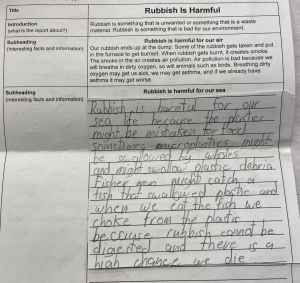 Title
Rubbish Is Harmful
Introduction
(what is the report about?)
Rubbish is something that is unwanted or something that is a waste
material. Rubbish is something that is bad for our environment.
Subheading
(Interesting facts and information)
Rubbish is harmful for our air
Our rubbish ends up at the dump. Some of the rubbish gets taken and put
in the furnace to get burned. When rubbish gets burnt, it creates smoke.
The smoke in the air creates air pollution. Air pollution is bad because we
will breathe in dirty oxygen, so will animals such as birds. Breathing dirty
oxygen may get us sick, we may get asthma, and if we already have
asthma it may get worse.
Subheading
(Interesting facts and information)
Rubbish is harmful for our sea
Rubbish is harmful for our
sea life because the plastics
might be mistaken for food
Sometimes microplastics might
be swallowed by whales
and might swallow plastic debris
Fisher men might catch a
fish that swallowed plastic and
when we eat the fish we
choke from the plastic
because rubbish cannot be
digested and there is a
high chance we die